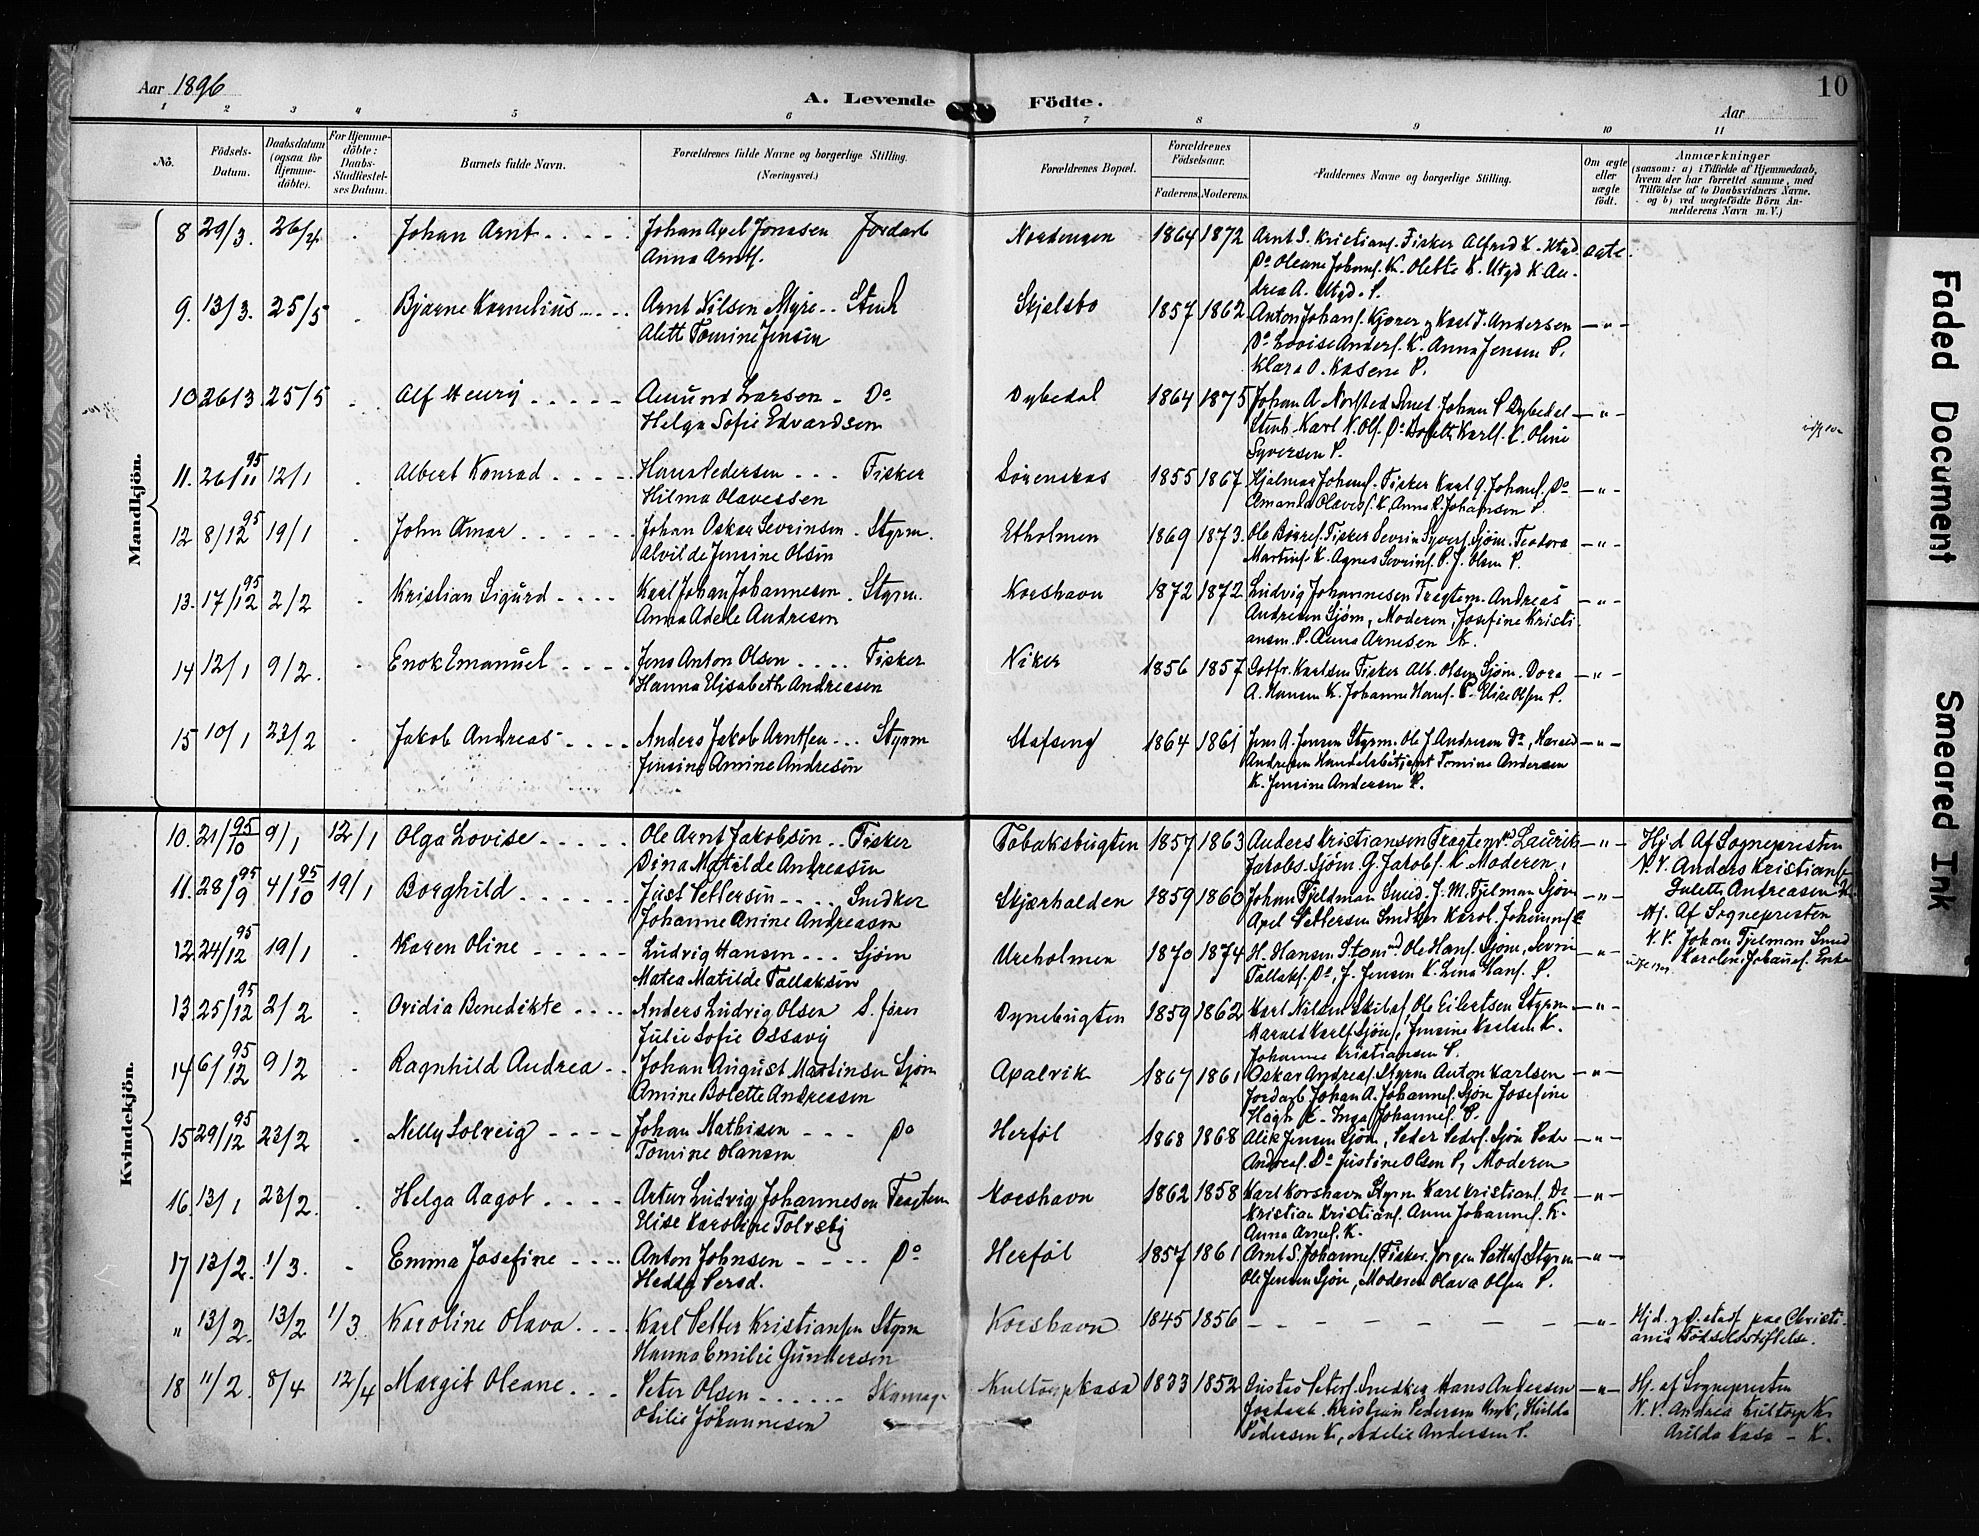 Aar 1896
A. Levende Födte.
Aar
10
1 2 3 4 5 6 7 8 9 10 11
Nö.
Födsels-Datum.
Daabsdatum (ogsaa for Hjemmedöbte).
For Hjemmedöbte: Daabs-Stadfæstelses Datum.
Barnets fulde Navn.
Forældrenes fulde Navne og borgerlige Stilling. (Næringsvei.)
Forældrenes Bopæl.
Forældrenes Födselsaar.
Faderens. Moderens.
Faddernes Navne og borgerlige Stilling.
Om ægte eller uægte födt.
Anmærkninger
(saasom: a) i Tilfælde af Hjemmedaab, hvem der har forrettet samme, med Tilföielse af to Daabsvidners Navne, og b) ved uægtefödte Börn Anmelderens Navn m. V.)
Mandkjön.
8 29/3. 26/4 Johan Arnt Johan Axel Jonasen Jordarb Nordengen 1864 1872 Arnt S. Kristians. Fisker Alfred K. Utgd ægte.
Anna Arntf. Do Oleane Johans. K. Olette K. Utgd K. An-
drea A. Utgd. P.
9. 13/3. 25/5 Bjarne Kornelius Arnt Nilsen Myre Stenh Skjelsbo 1857 1862 Anton Johans. Kjører, Karl J. Andersen -"-
Alett Tomine Jensen Do Lovise Anders. K. Anna Jensen P.
Klara O. Kasene P.
10 26/3 25/5 Alf Henry Amund Larsen Do Dybedal 1864 1875 Johan A Nordsted Smed. Johan P Dybedal -"-
Helga Sofie Edvardsen Stenh. Karl N. Ols. Do Karls. K. Oline
Syversen P.
11. 26/11 95 12/1 Albert Konrad Hans Pedersen Fisker Sørenskas 1855 1867 Hjalmar Johans. Fisker Karl G. Johans. Do -"-
Hilma Olavessen Amanda Olaves. K. Anna K. Johansen P.
12 8/12 95 19/1 John Omar Johan Oskar Severinsen Styrm. Etholmen 1869 1873. Ole Børres. Fisker Severin Syvers. Sjøm. Teodora -"-
Alvilde Jensine Olsen Martins. K. Agnes Severins. P. J. Olsen P.
13. 17/12 95 2/2 Kristian Sigurd Karl Johan Johannesen Styrm. Korshavn 1872 1872 Ludvig Johannesen Fragtem. Andreas -"-
Anna Adele Andresen Andresen Sjøm, Moderen, Josefine Kristi
ansen. P. Anna Arnesen K.
14 12/1 9/2. Enok Emanuel Jens Anton Olsen Fisker Viker 1856 1857 Gotfr. Karlsen Fisker Alb. Olsen Sjøm. Dora -"-
Hanna Elisabeth Andreasen A. Hansen K. Johanne Hans. P. Elise Olsen P.
15 10/1 23/2 Jakob Andreas Anders Jakob Arntsen Styrm Stafseng 1864 1861 Jens A. Jensen Styrm. Ole J. Andresen Do, Harald -"-
Jensine Amine Andresen Andresen Handelsbetjent Tomine Andersen
K. Jensine Andersen P.
Kvindekjön.
10. 21/10 95 9/1 12/1 Olga Lovise Ole Arnt Jakobsen Fisker Tobaksbugten 1857 1863 Anders Kristiansen Fragtem. Laurits -"- Hj. d Af Sognepresten
Dina Matilde Andreasen Jakobs. Sjøm. G. Jakobs. K. Moderen, V. V. Anders Kristians.
11. 28/9 95 4/10 95 19/1 Borghild Just Pettersen Snedker Skjærhalden 1859 1860 Johan Fjeldman Smed. J. M. Fjelman Sjøm -"- Julette Andreasen
Johanne Anine Andreasen Axel Pettersen Snedker Karol. Johanns. E Hj. Af Sognepresten
12 24/12 95 19/1 Karen Oline Ludvig Hansen Sjøm Ureholmen 1870 1874 H. Hansen Ole Hans. Sjøm, Severin -"- V. V. Johan Fjelman Smed
Matea Matilde Tallaksen Tallaks. Do. J. Jensen K. Lina Hans. P. Karoline Johans. Enke
13. 25/12 95 2/2 Ovidia Benedikte Anders Ludvig Olsen S. fører Dynebugten 1859 1862 Karl Nilsen Ole Eilertsen Styrm -"-
Julie Sofie Ossavy Harald Karls. Sjøm, Jensine Karlsen K.
Johannes Kristiansen P.
14 6/12 95 9/2 Ragnhild Andrea Johan August Martinsen Sjøm Apalvik 1867 1861 Oskar Andreas. Styrm Anton Karlsen -"-
Amine Bolette Andreasen Jordarb Johan A. Johannes. Sjøm Josefine
Hagh K. Inga Johannes. P.
15 29/12 95 23/2 Nilly Solveig Johan Mathisen Do Herføl 1868 1868 Alex Jensen Sjøm, Peder Peders. Sjøm Peder -"-
Tomine Hansen Andreas. Do Justine Olsen P, Moderen
16. 13/1 23/2. Helga Aagot Artur Ludvig Johannesen Fragtem Korshavn 1862 1858 Karl Korshavn Styrm Karl Kristians. Do -"-
Elise Karoline Tolvsby Kristian Kristians. Anne Johannes. K.
Anna Arnes. K.
17 13/2. 1/3. Emma Josefine Anton Johnsen Do Herføl 1857 1861 Arnt S. Johannes. Fisker. Jørgen Petters. Styrm -"-
Hedda Persd. Ole Jensen Sjøm, Moderen Olava Olsen P.
" 13/2. 13/2 1/3 Karoline Olava Karl Petter Kristiansen Styrm Korshavn 1845 1856 - - - - - - -"- Hjd. og D. stadf paa Christi-
Hanna Emilie Gundersen ania Fødselsstiftelse.
18 11/2. 8/4 12/4 Margit Oleane Peter Olsen Skomag. Kultorpkasa 1833 1852 Gustav Peters. Snedker Hans Andersen -"- Hj. af Sognepresten
Otilie Johannesen Jordarb. Kristian Pedersen Ungk, Hulda V. V. Andrea Kultorp K.
Pedersen K, Adelie Andersen P. Arilda Kasa - K.
Faded Document
Smeared Ink